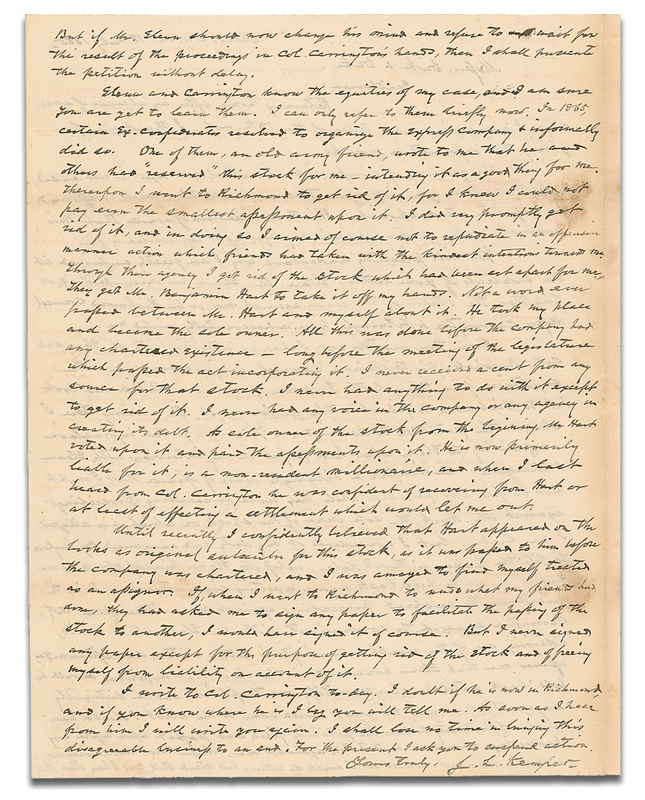 But if Mr. Glenn should now change his mind and refuse to wait for
the result of the proceedings in Col. Carrington's hands, then I shall prosecute
the petition without delay.
Glenn and Carrington know the equities of my case, and I am sure
you are yet to learn them. I can only refer to them briefly now. In 1865,
certain Ex-confederates resolved to organize the Express Company & informally
did so. One of them, an old army friend, wrote to me that he and
others had "reserved" this stock for me – intending it as a good thing for me.
Thereupon I went to Richmond to get rid of it, for I knew I could not
pay even the smallest assessment upon it. I did very promptly get
rid of it, and in doing so I aimed of course not to repudiate in an offensive
manner action which friends had taken with the kindest intentions towards me
through their agency I got rid of the stock which had been set apart for me,
they got Mr. Benjamin Hart to take it off my hands. Not a word ever
passed between Mr. Hart and myself about it. He took my place
and became the sole owner. All this was done before the company had
any chartered existence – long before the meeting of the legislature
which passed the act incorporating it. I never received a cent from any
source for that stock. I never had anything to do with it except
to get rid of it. I never had any voice in the company or any agency in
creating its debt. As sole owner of the stock from the beginning Mr Hart
voted upon it and paid the assessments upon it. He is now primarily
liable for it, is a non-resident millionaire, and when I last
heard from Col. Carrington he was confident of recovering from Hart or
at least of effecting a settlement which would let me out.
Until recently I confidently believed that Hart appeared on the
books as original subscriber for this stock, as it was passed to him before
the company was chartered, and I was amazed to find myself treated
as an assignor. If, when I went to Richmond to undo what my friends had
done, they had asked me to sign any paper to facilitate the passing of the
stock to another, I would have signed it of course. But I never signed
any paper except for the purpose of getting rid of the stock and of freeing
myself from liability on account of it.
I write to Col. Carrington to-day. I doubt if he is now in Richmond
and if you know where he is I beg you will tell me. As soon as I hear
from him I will write you again. I shall lose no time in bringing this
disagreeable business to an end. For the present I ask you to suspend action.
Yours truly, J. L. Kemper